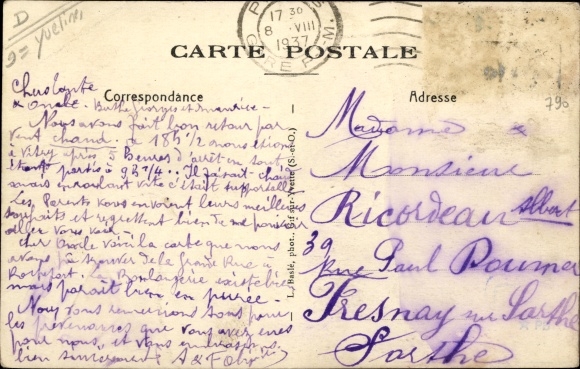 D
Yvelines
17 30
8 VIII
1937
CARTE POSTALE
790
Correspondance
Adresse
Chers Tante
& Oncle
Nous avons fait bon retour par
vent chaud. à 18h 1/2 nous étions
à Vitry après 5 heures d'arrêt en tout
étant partis à 9h 3/4. Il faisait chaud
mais en roulant vite c'était supportable
Les Parents vous envoient leurs meilleurs
souhaits et regrettent bien de ne pouvoir
aller vous voir.
Cher Oncle voici la carte que nous
avons pu trouver de la Grande Rue à
Rochefort. La Boulangerie existe bien
mais paraît bien en
Nous vous remercions tous pour
les prévenances que vous avez eues
pour nous, et vous embrassons
bien sincèrement. A &
L. Basle, phot. Gif-sur-Yvette (S.-et-O.)
Madame &
Monsieur
Ricordeau Albert
39
Rue Paul Doumer
Fresnay sur Sarthe
Sarthe